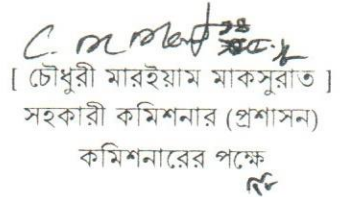 [ চৌধুরী মারইয়াম মাকসুরাত ]
সহকারী কমিশনার (প্রশাসন)
কমিশনারের পক্ষে